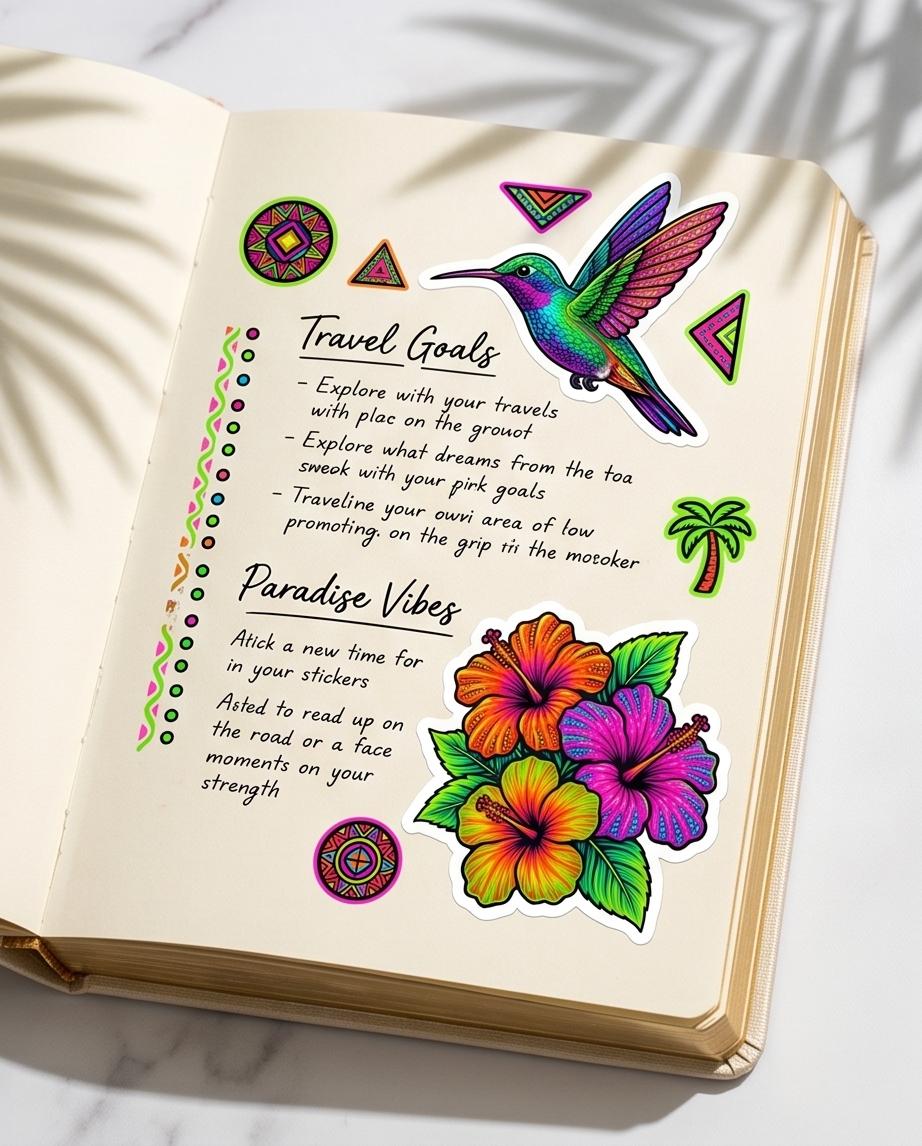 Travel Goals
- Explore with your travels
with plac on the grouot
- Explore what dreams from the toa
sweok with your pirk goals
- Traveline your owvi area of low
promoting. on the grip the mosoker
Paradise Vibes
Atick a new time for
in your stickers
Asted to read up on
the road or a face
moments on your
strength